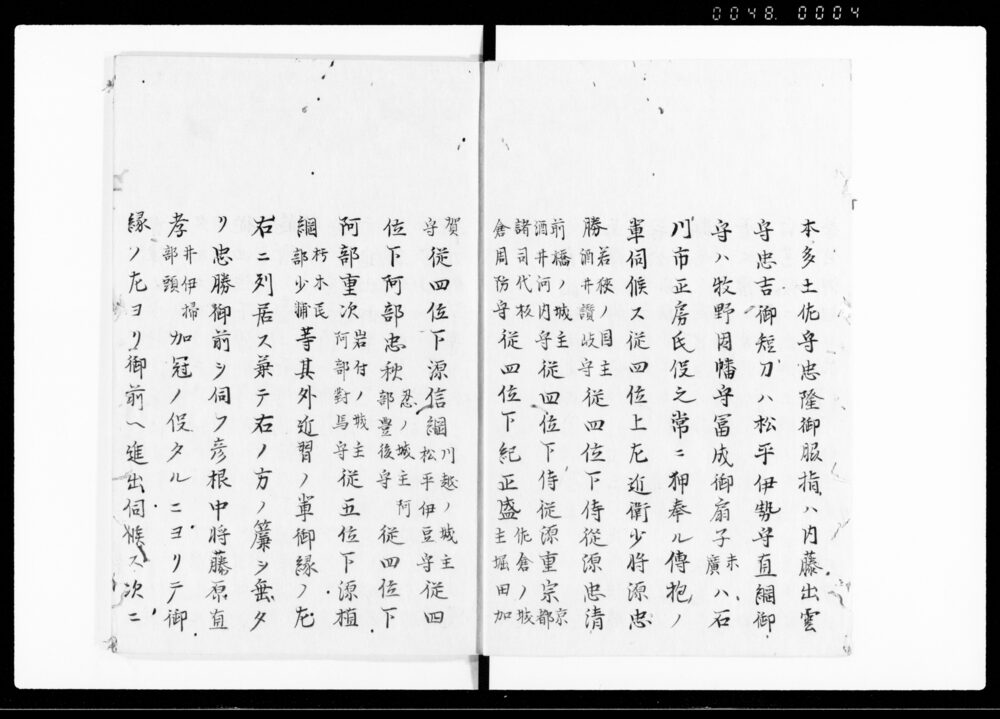 0048. 0004
本多土佐守忠隆御服指ハ内藤出雲
守忠吉御短刀ハ松平伊勢守直綱御
守ハ牧野因幡守冨成御扇子末廣ハ石
川市正房氏役之常ニ狎奉ル傳抱ノ
軍伺候ス従四位上左近衛少將源忠
勝若狹ノ国主酒井讚岐守従四位下侍従源忠清
前橋ノ城主酒井河内守従四位下侍従源重宗京都
諸司代板倉周防守従四位下紀正盛佐倉ノ城主堀田加
賀守従四位下源信綱川越ノ城主松平伊豆守従四
位下阿部忠秋忍ノ城主阿部豊後守従四位下
阿部重次岩付ノ城主阿部對馬守従五位下源植
綱朽木民部少輔等其外近習ノ軍御縁ノ左
右ニ列居ス兼テ右ノ方ノ簾シ垂タ
リ忠勝御前シ伺フ彦根中將藤原直
孝井伊掃部頭加冠ノ役タルニヨリテ御
縁ノ左ヨリ御前ヘ進出伺候ス次ニ